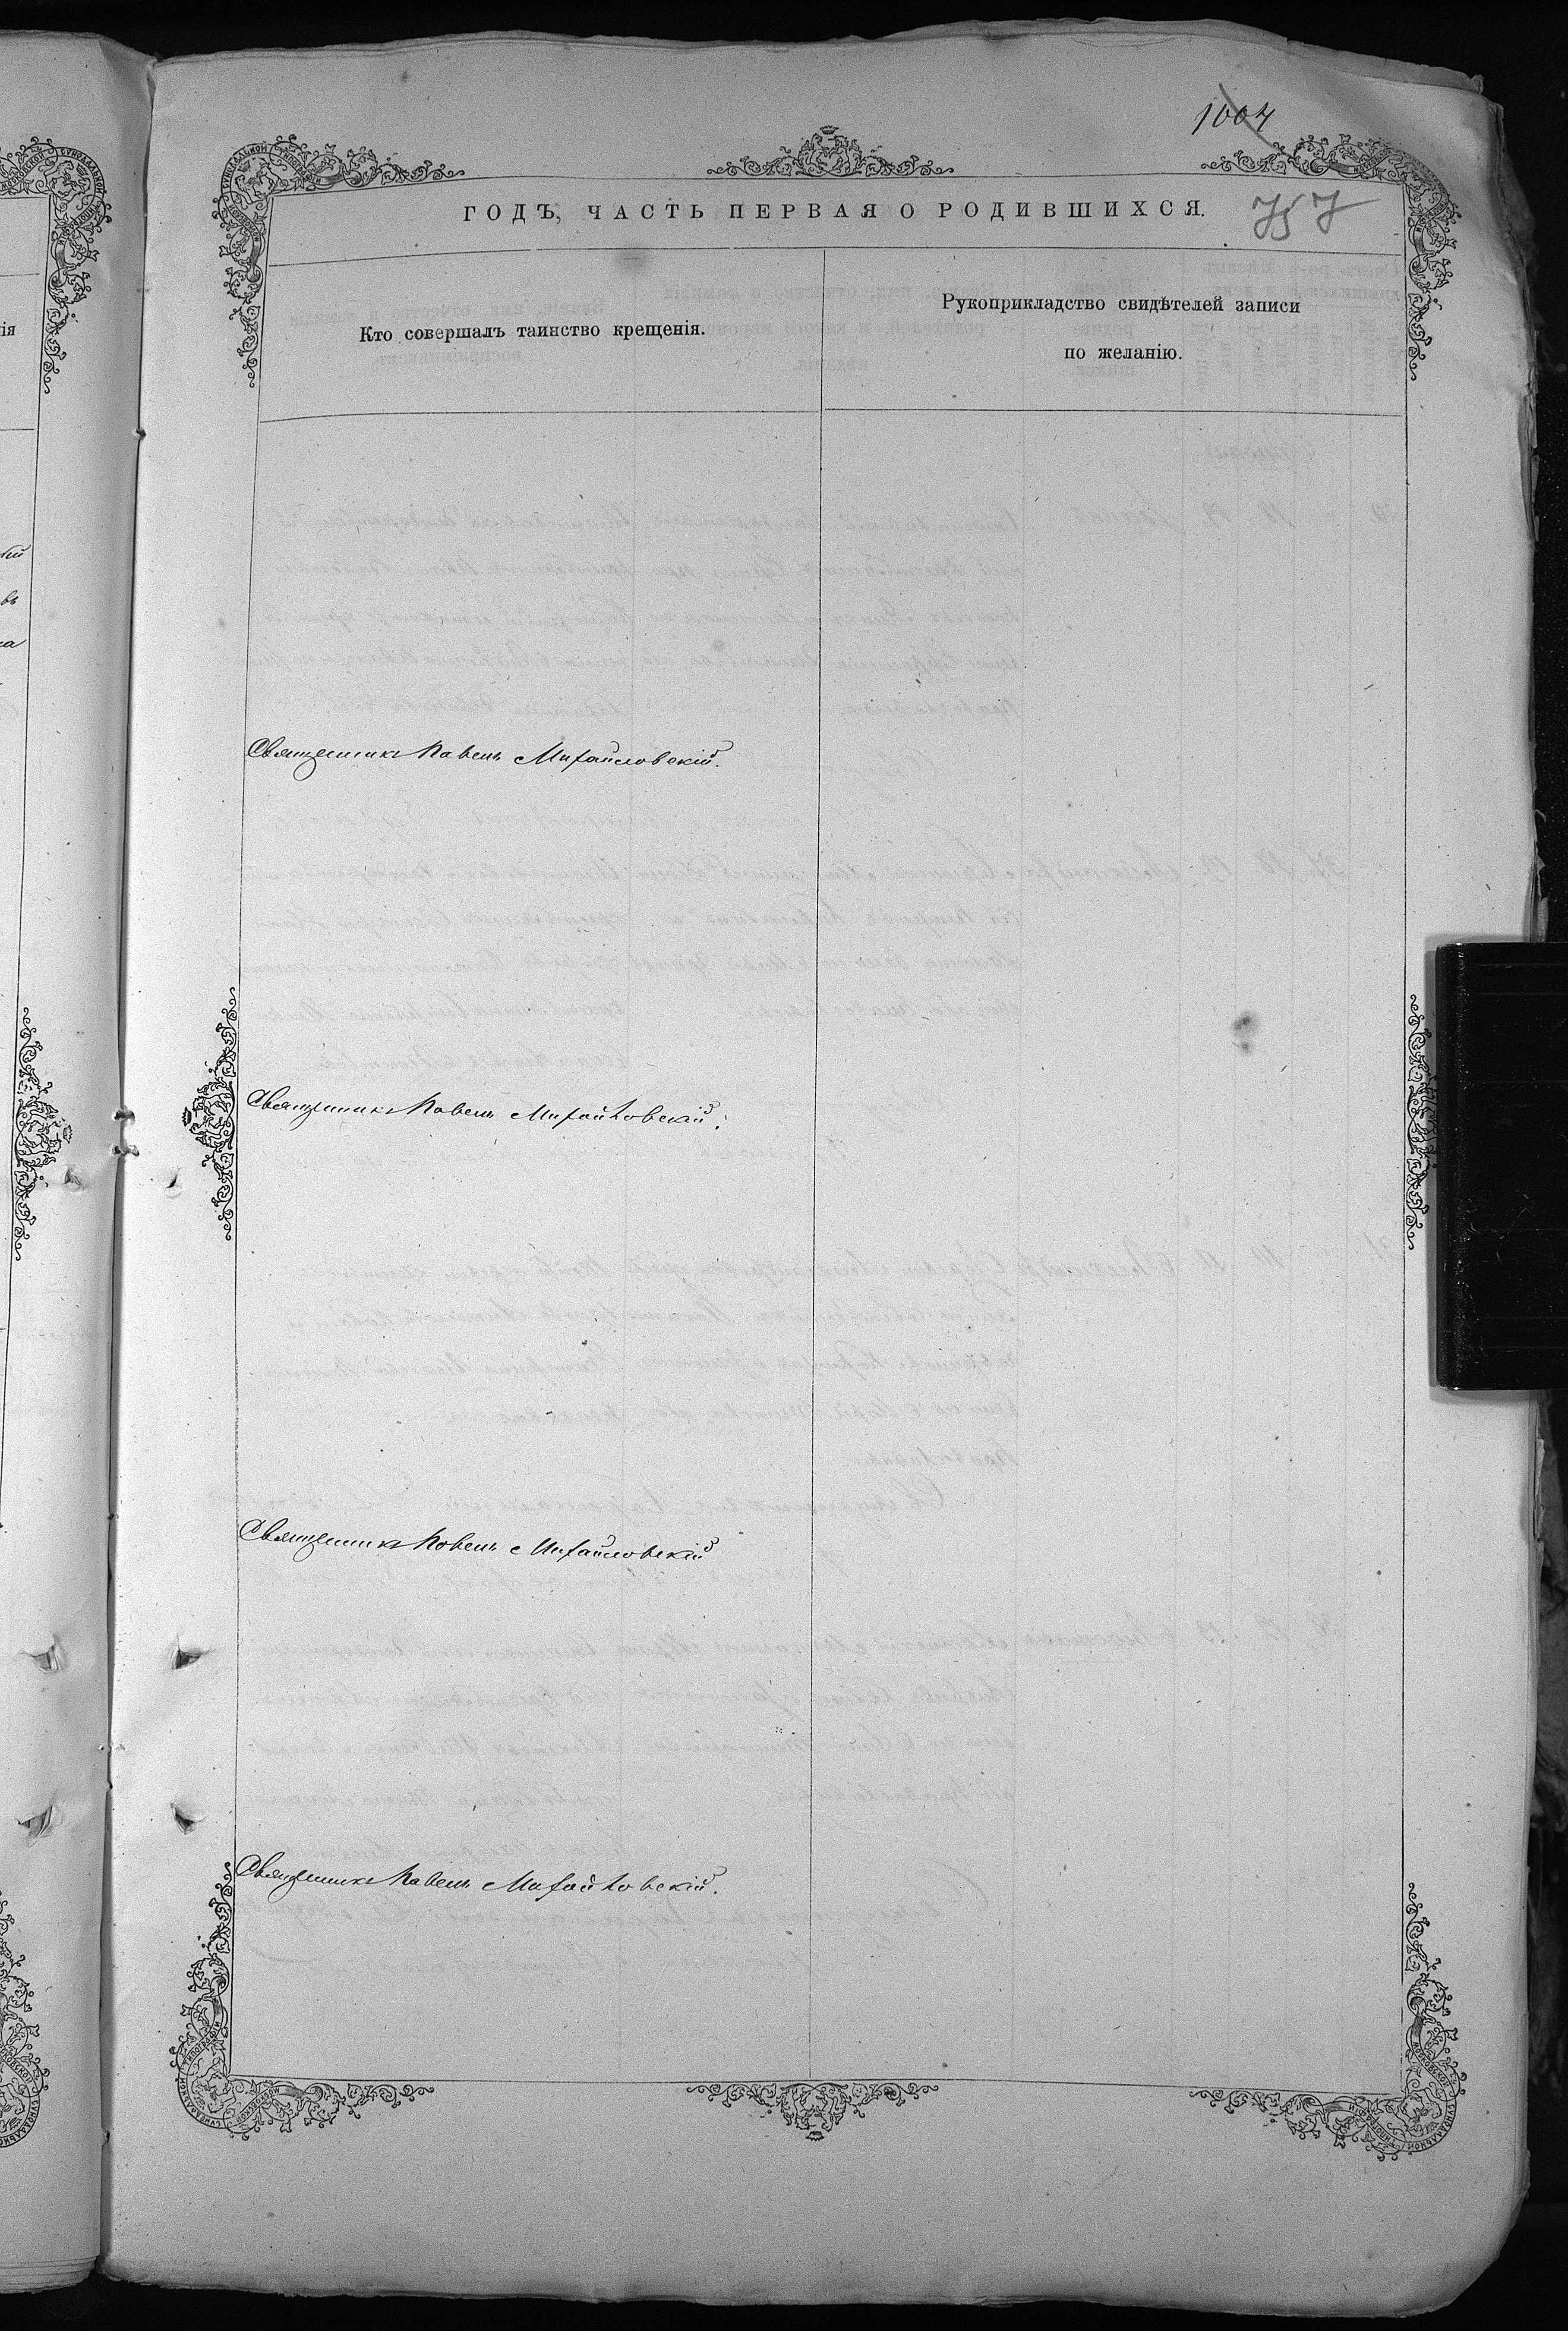 1004
757
ГОДЪ, ЧАСТЬ ПЕРВАЯ О РОДИВШИХСЯ.
Кто совершалъ таинство крещенія.
Рукоприкладство свидѣтелей записи
по желанію.
Священникъ Павелъ Михайловскій.
Священникъ Павелъ Михайловскій.
Священникъ Павелъ Михайловскій
Священникъ Павелъ Михайловскій.